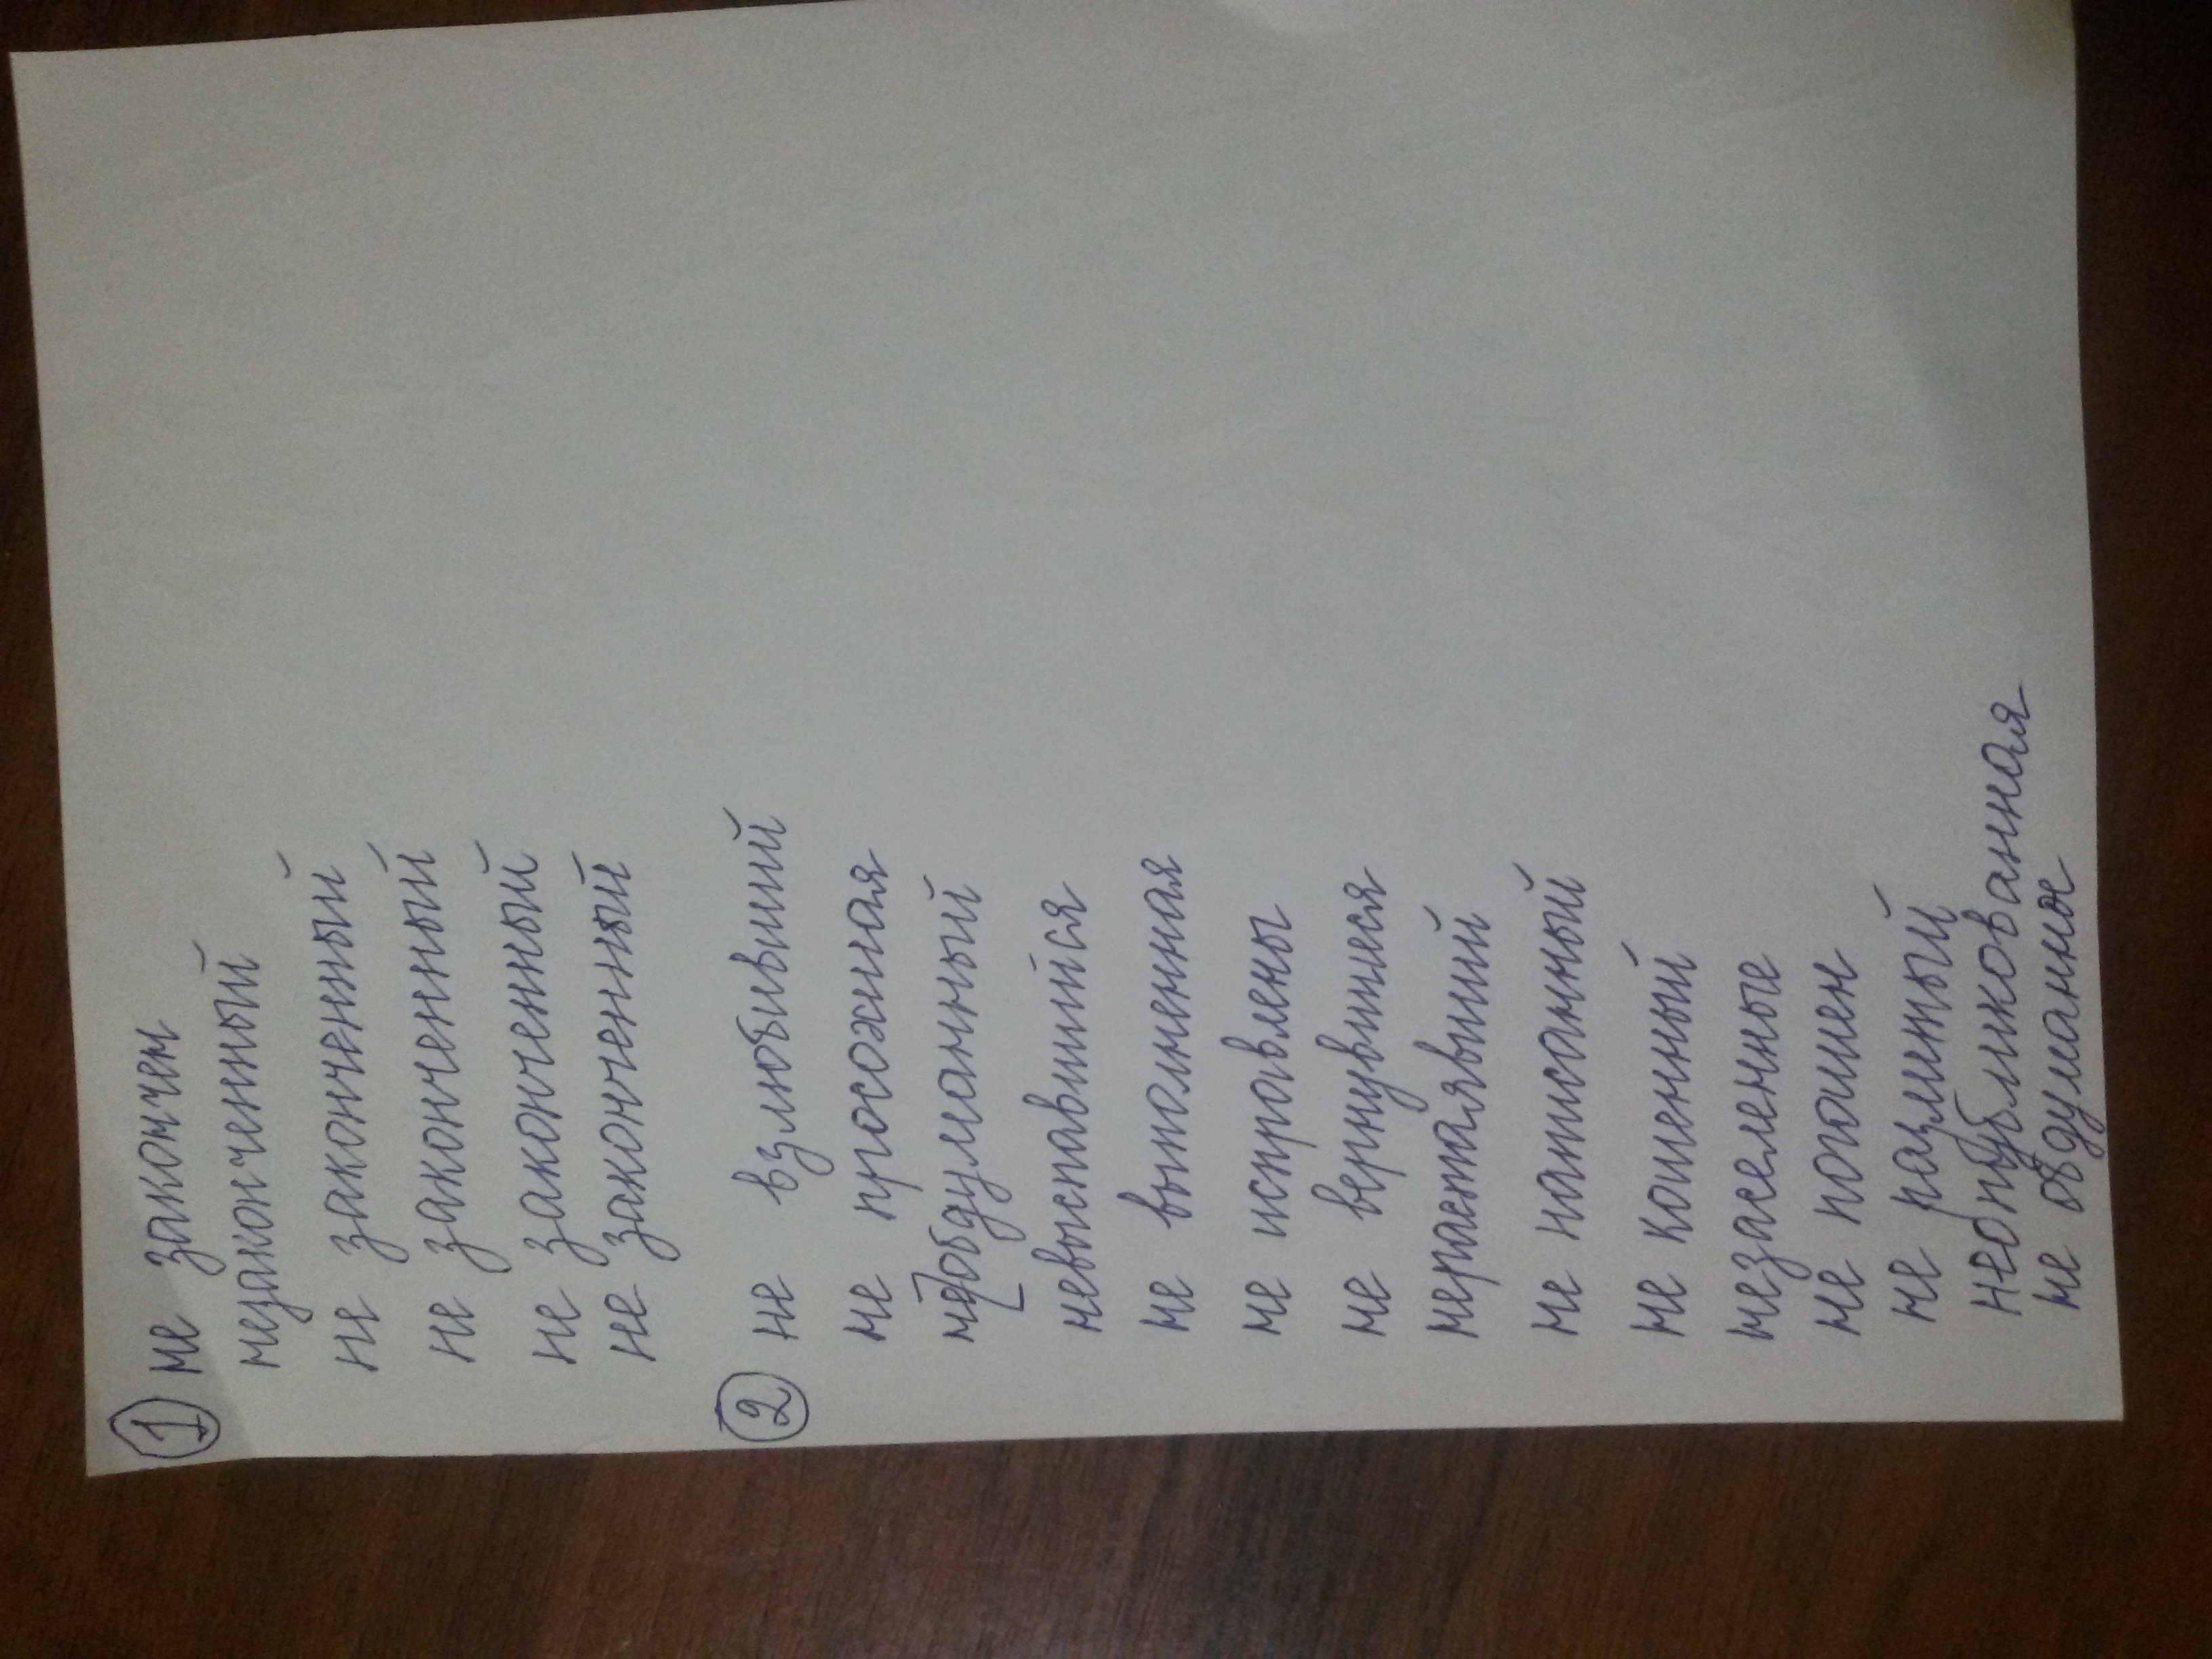 1 не закончен
незаконченный
не законченный
не законченный
не законченный
не законченный
2 не взлюбивший
не просохшая
не обдуманный
невыспавшийся
не выполненная
не исправлены
не вернувшиеся
нерастаявший
не написанный
не кошенный
незаселенные
не погашен
не разлитый
неопубликованная
не обдуманное